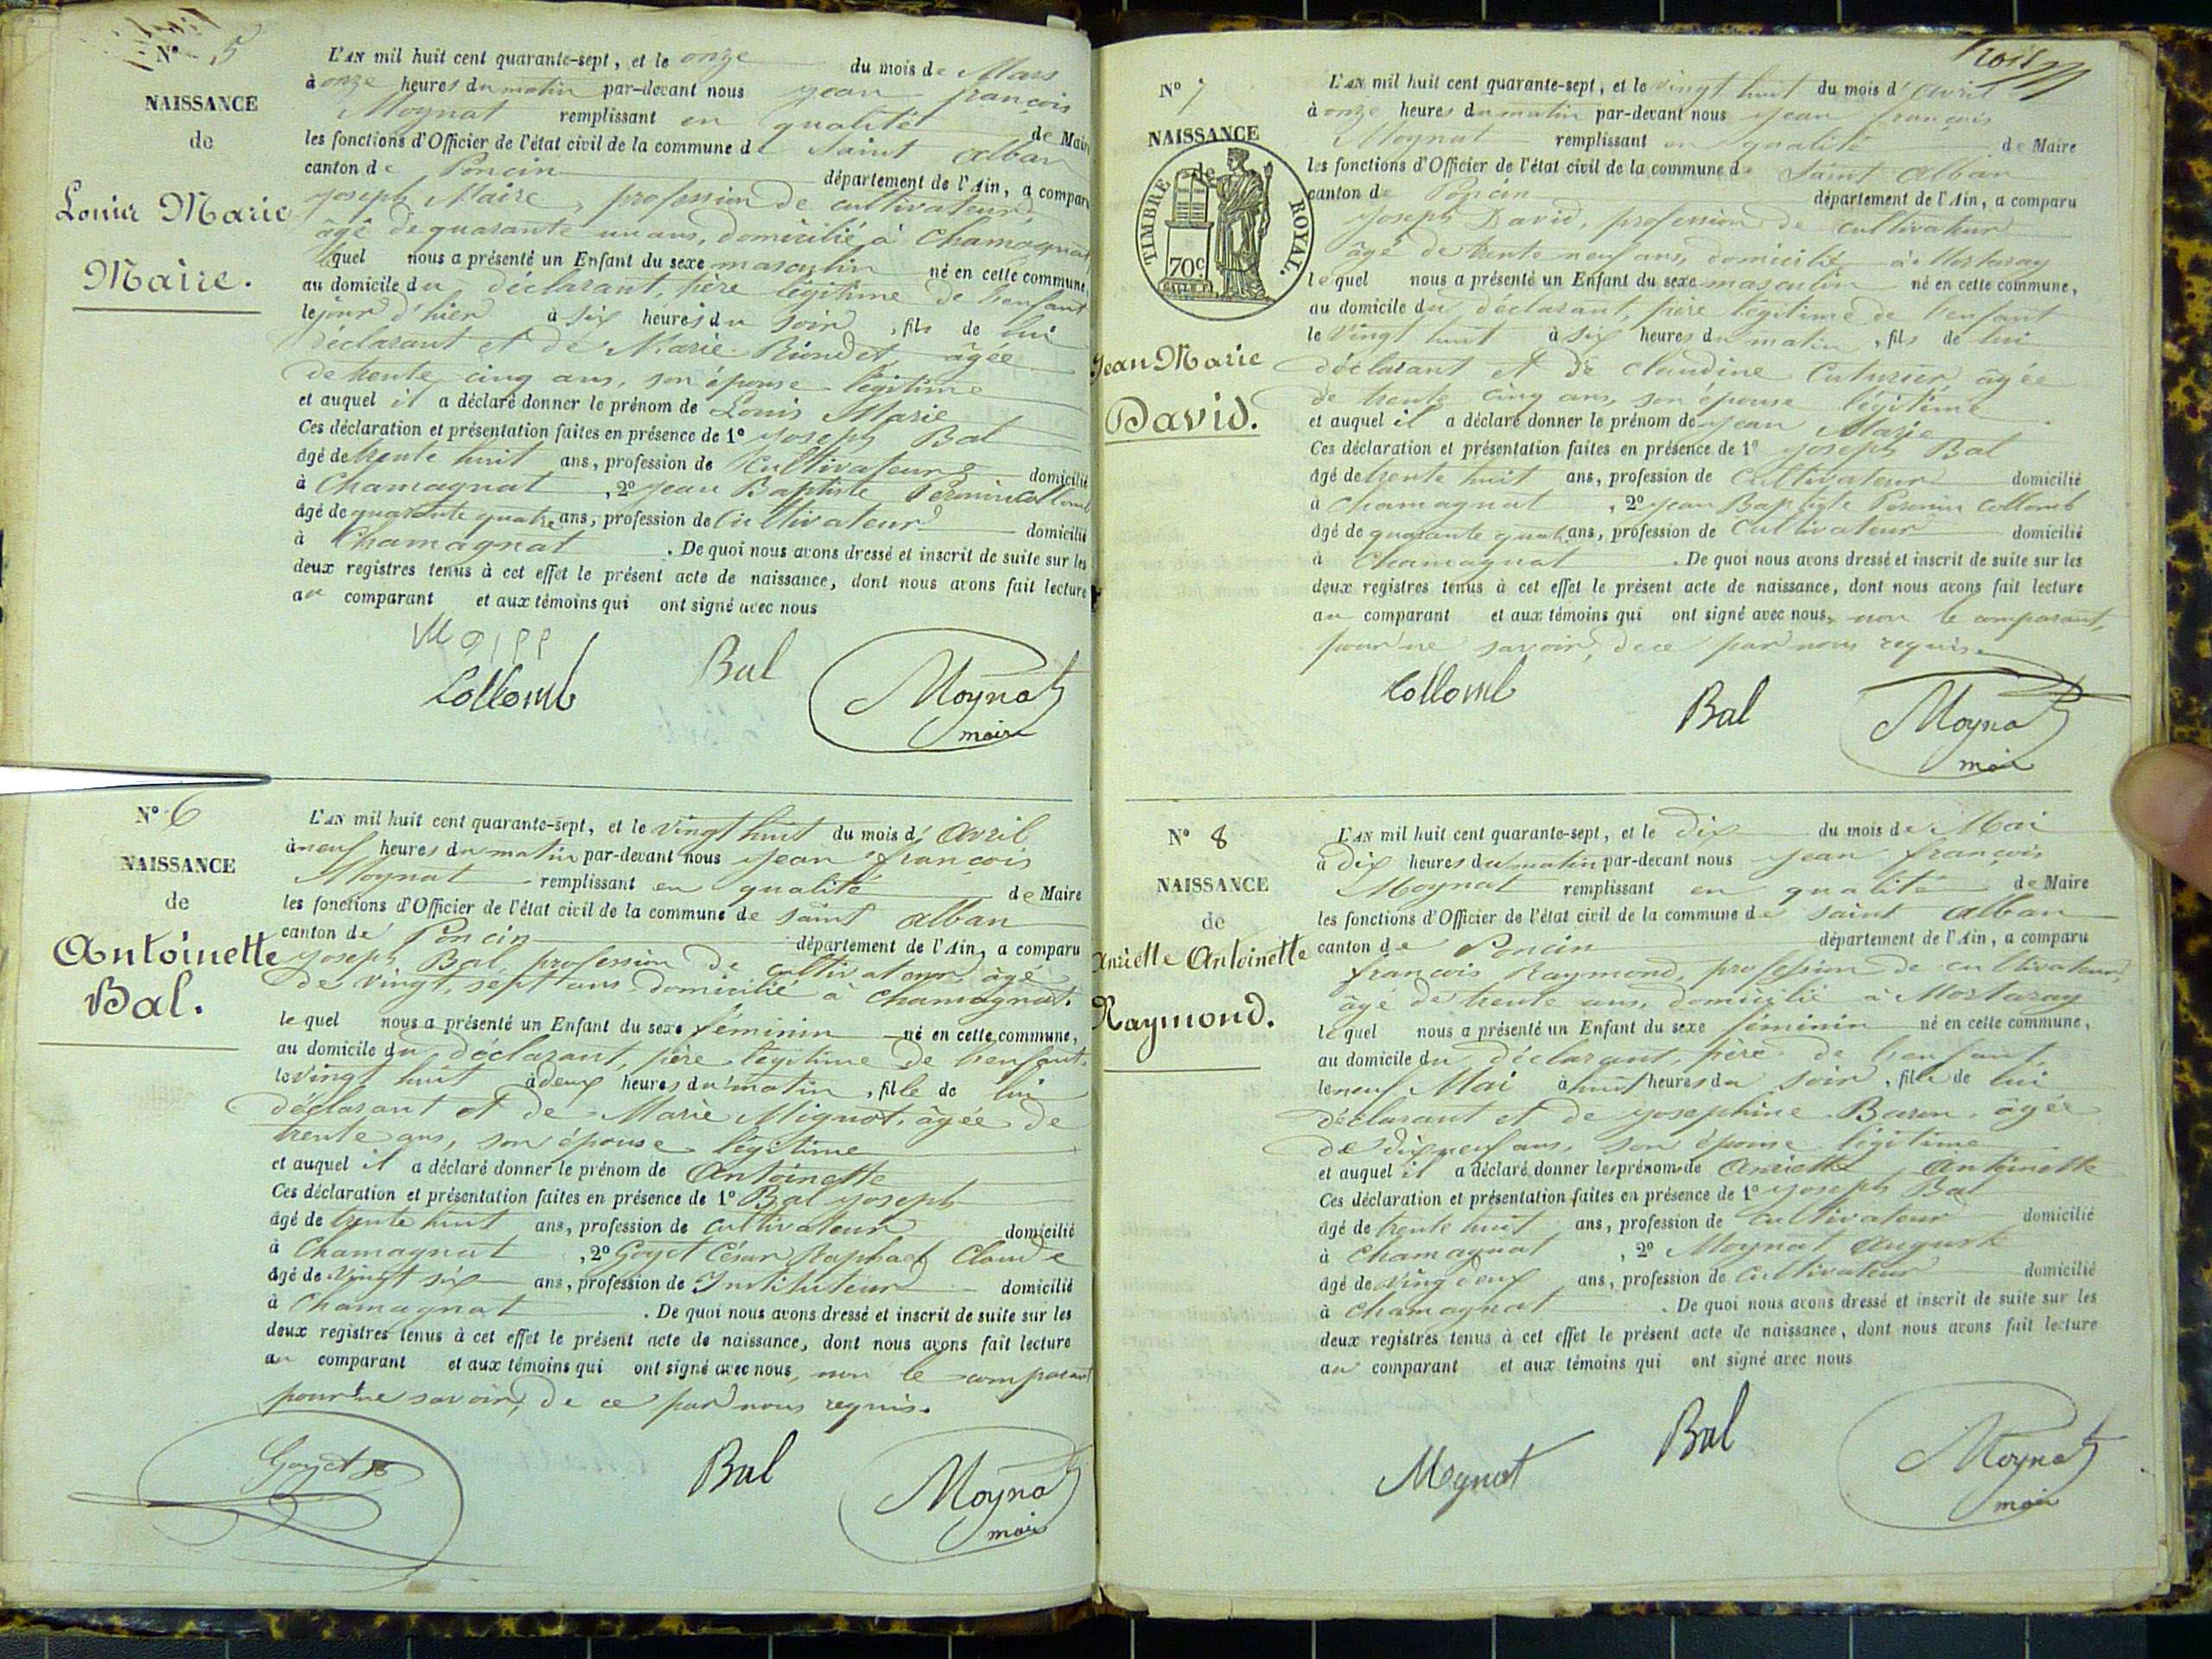 N° 5
NAISSANCE
de
Louis Marie
Maire.
L'AN mil huit cent quarante-sept, et le onze du mois de Mars
à onze heures du matin par-devant nous Jean françois
Moynat remplissant en qualité de Maire
les fonctions d'Officier de l'état civil de la commune de Saint Alban
canton de Poncin département de l'Ain, a comparu
Joseph Maire, profession de cultivateur,
âgé de quarante un ans, domicilié à Chamagnat
lequel nous a présenté un Enfant du sexe masculin né en cette commune,
au domicile du déclarant, père légitime de l'enfant
le jour d'hier à six heures du soir, fils de lui
déclarant et de Marie Riondet, âgée
de trente cinq ans, son épouse légitime
et auquel il a déclaré donner le prénom de Louis Marie
Ces déclaration et présentation faites en présence de 1° Joseph Bal
âgé de trente huit ans, profession de Cultivateur domicilié
à Chamagnat, 2° Jean Baptiste Perrinin Collomb
âgé de quarante quatre ans, profession de Cultivateur domicilié
à Chamagnat. De quoi nous avons dressé et inscrit de suite sur les
deux registres tenus à cet effet le présent acte de naissance, dont nous avons fait lecture
au comparant et aux témoins qui ont signé avec nous
Maire
Collomb Bal Moynat
maire
N° 6
NAISSANCE
de
Antoinette
Bal.
L'AN mil huit cent quarante-sept, et le vingt huit du mois d'Avril
à neuf heures du matin par-devant nous Jean françois
Moynat remplissant en qualité de Maire
les fonctions d'Officier de l'état civil de la commune de saint Alban
canton de Poncin département de l'Ain, a comparu
Joseph Bal, profession de cultivateur âgé
de vingt sept ans domicilié à Chamagnat.
lequel nous a présenté un Enfant du sexe féminin né en cette commune,
au domicile du déclarant, père légitime de l'enfant.
le vingt huit à deux heures du matin, fille de lui
déclarant et de Marie Mignot, âgée de
trente ans, son épouse légitime
et auquel il a déclaré donner le prénom de Antoinette
Ces déclaration et présentation faites en présence de 1° Bal Joseph
âgé de trente huit ans, profession de cultivateur domicilié
à Chamagnat, 2° Goyet César Raphael Claude
âgé de vingt six ans, profession de Instituteur domicilié
à Chamagnat. De quoi nous avons dressé et inscrit de suite sur les
deux registres tenus à cet effet le présent acte de naissance, dont nous avons fait lecture
au comparant et aux témoins qui ont signé avec nous, non le comparant
pour ne savoir, de ce par nous requis.
Goyet Bal Moynat
maire
trois
N° 7
NAISSANCE
de
TIMBRE ROYAL.
70c
Jean Marie
David.
L'AN mil huit cent quarante-sept, et le vingt huit du mois d'avril
à onze heures du matin par-devant nous Jean françois
Moynat remplissant en qualité de Maire
les fonctions d'Officier de l'état civil de la commune de Saint Alban
canton de Poncin département de l'Ain, a comparu
Joseph David, profession de cultivateur
âgé de trente neuf ans, domicilié à Mortaray
lequel nous a présenté un Enfant du sexe masculin né en cette commune,
au domicile du déclarant, père légitime de l'enfant
le vingt huit à six heures du matin, fils de lui
déclarant et de Claudine Cuturier, âgée
de trente cinq ans, son épouse légitime
et auquel il a déclaré donner le prénom de Jean Marie
Ces déclaration et présentation faites en présence de 1° Joseph Bal
âgé de trente huit ans, profession de Cultivateur domicilié
à Chamagnat, 2° Jean Baptiste Perrinin Collomb
âgé de quarante quat ans, profession de Cultivateur domicilié
à Chamagnat. De quoi nous avons dressé et inscrit de suite sur les
deux registres tenus à cet effet le présent acte de naissance, dont nous avons fait lecture
au comparant et aux témoins qui ont signé avec nous, non le comparant,
pour ne savoir, de ce par nous requis.
Collomb Bal Moynat
maire
N° 8
NAISSANCE
de
Anriette Antoinette
Raymond.
L'AN mil huit cent quarante-sept, et le dix du mois de Mai
à Dix heures du matin par-devant nous Jean françois
Moynat remplissant en qualité de Maire
les fonctions d'Officier de l'état civil de la commune de saint Alban
canton de Poncin département de l'Ain, a comparu
françois Raymond, profession de cultivateur,
âgé de trente ans, domicilié à Mortaray
lequel nous a présenté un Enfant du sexe féminin né en cette commune,
au domicile du déclarant, père de l'enfant,
le neuf Mai à huit heures du soir, fille de lui
déclarant et de Josephine Baron, âgée
de dix neuf ans, son épouse légitime
et auquel il a déclaré donner les prénoms de Anriette Antoinette
Ces déclaration et présentation faites en présence de 1° Joseph Bal
âgé de trente huit ans, profession de cultivateur domicilié
à Chamagnat, 2° Moynat Auguste
âgé de ving deux ans, profession de Cultivateur domicilié
à Chamagnat. De quoi nous avons dressé et inscrit de suite sur les
deux registres tenus à cet effet le présent acte de naissance, dont nous avons fait lecture
au comparant et aux témoins qui ont signé avec nous
Moynat Bal Moynat
maire